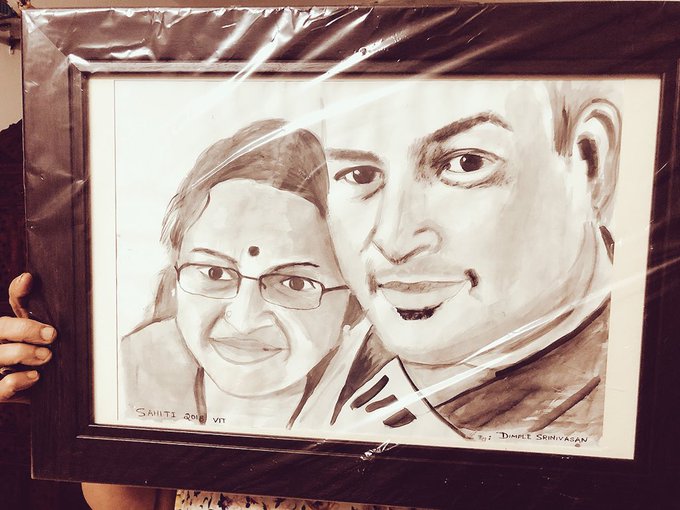 SAHITI 2016 VIT
By: DIMPLE SRINIVASAN